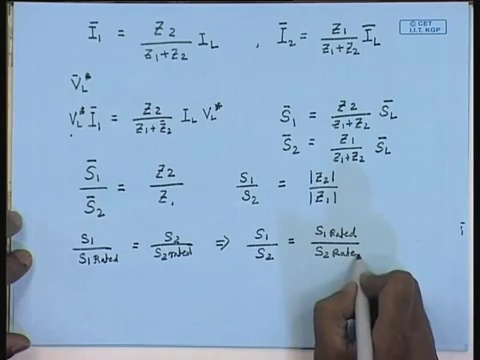 Ī₁ = Z₂/(Z₁+Z₂) I_L , Ī₂ = Z₁/(Z₁+Z₂) Ī_L
© CET
I.I.T. KGP
V̄_L*
V_L* Ī₁ = Z₂/(Z₁+Z₂) I_L V_L*
S̄₁ = Z₂/(Z₁+Z₂) S̄_L
S̄₂ = Z₁/(Z₁+Z₂) S̄_L
S̄₁/S̄₂ = Z₂/Z₁
S₁/S₂ = |Z₂|/|Z₁|
S₁/S₁Rated = S₂/S₂rated ⇒ S₁/S₂ = S₁Rated/S₂Rate